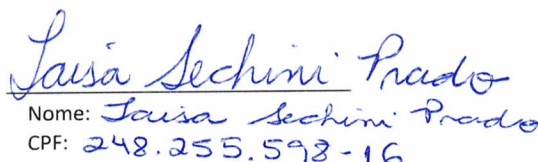 Taisa Sechini Prado
Nome: Taisa Sechini Prado
CPF: 248.255.598-16